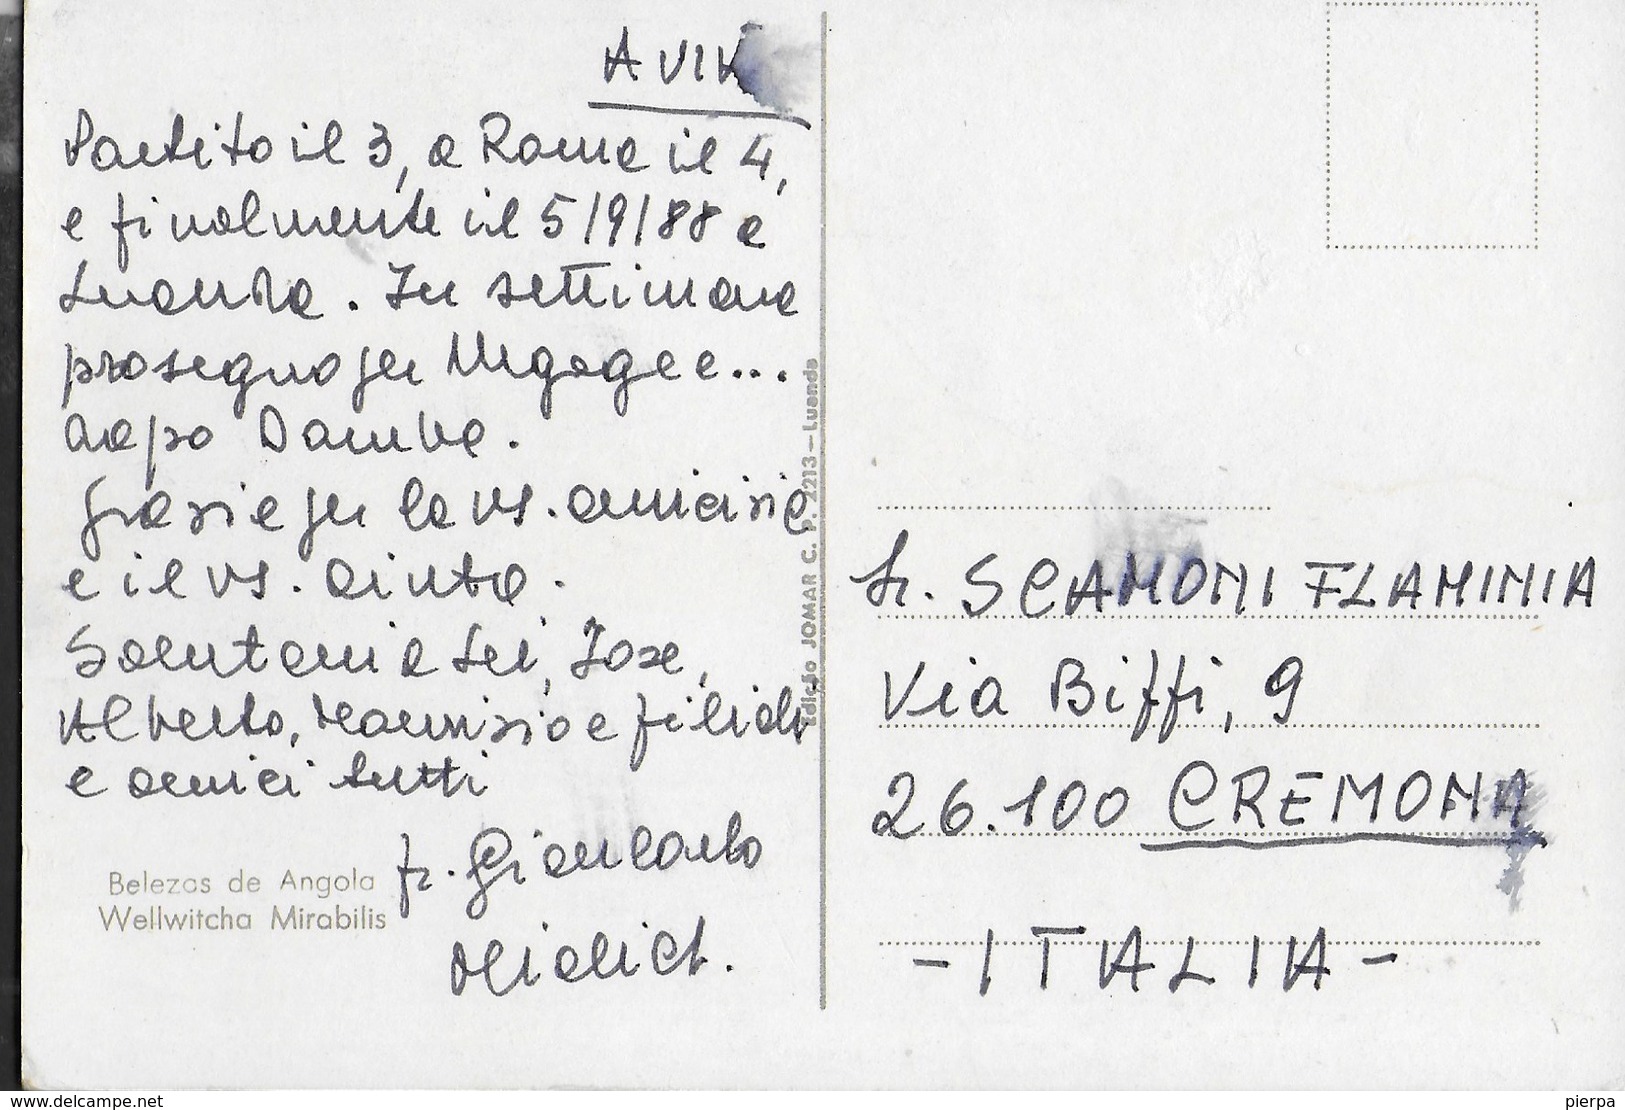 Partito il 3, a Roma il 4,
e finalmente il 5/9/88 a
Luanda. In settimana
proseguo per e...
dopo Damba.
Grazie per la vs. amicizia
e il vs. aiuto.
Saluterai a Lei, Jose,
Alberto, Maurizio e
e amici tutti
fr. Giancarlo
Belezas de Angola
Wellwitcha Mirabilis
Edição JOMAR C. P. 2213 – Luanda
SCAMONI FLAMINIA
Via Biffi, 9
26.100 CREMONA
- ITALIA -
www.delcampe.net
pierpa